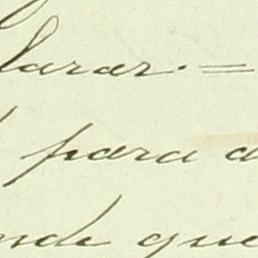 larar. =
para a
nde que